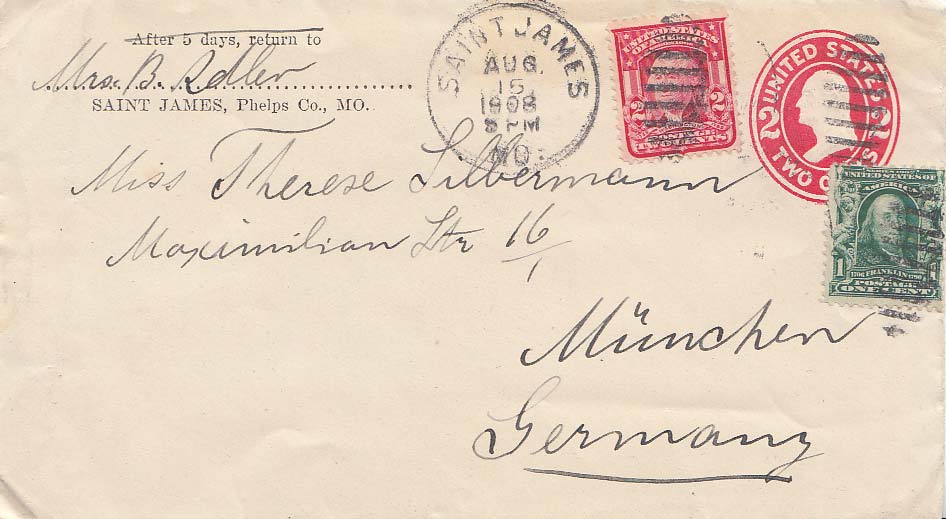 After 5 days, return to
Mrs. B. Adler
SAINT JAMES, Phelps Co., MO.
SAINT JAMES
AUG.
15
1908
8 PM
MO.
UNITED STATES
OF AMERICA
2 2
POSTAGE
TWO CENTS
UNITED STATES
2 2
TWO
UNITED STATES OF
AMERICA
1
1706 FRANKLIN 1790
POSTAGE
ONE CENT
Miss Therese Silbermann
Maximilian Str 16/1
München
Germany